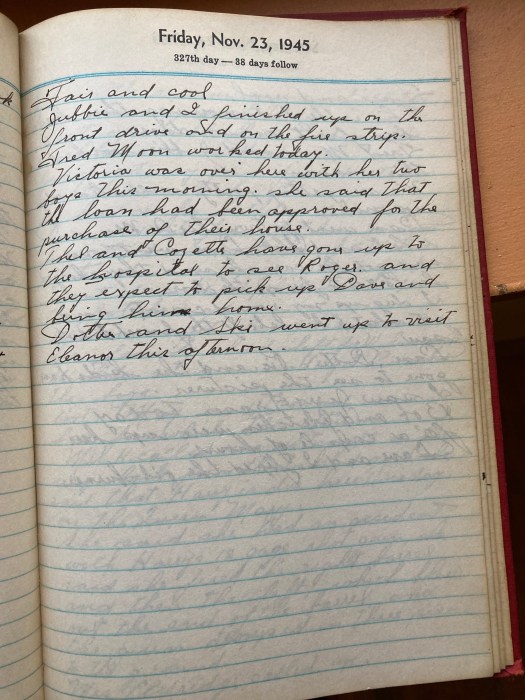 Friday, Nov. 23, 1945
327th day — 38 days follow
Fair and cool
Jubbie and I finished up on the
front drive and on the fire strip.
Fred Moon worked today.
Victoria was over here with her two
boys this morning. she said that
the loan had been approved for the
purchase of their house.
Thel and Cozette have gone up to
the hospital to see Roger. and
they expect to pick up Dave and
bring him home.
Dottie and Ski went up to visit
Eleanor this afternoon.